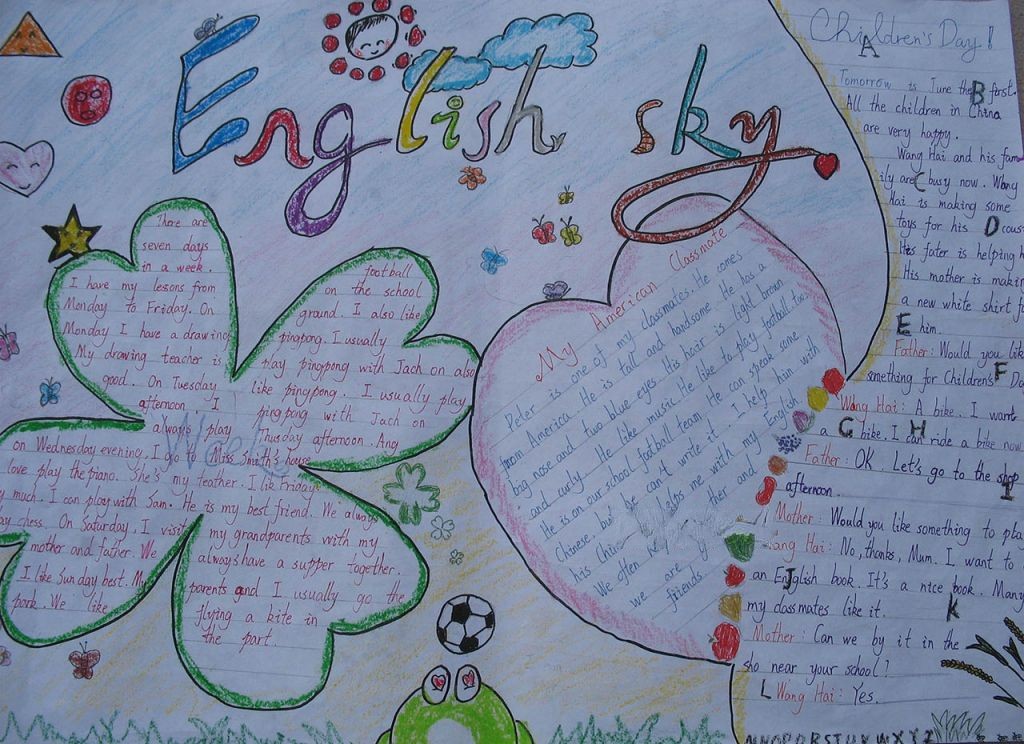 English sky
There are
seven days
in a week.
I have my lessons from
Monday to Friday. On
Monday I have a drawing
My drawing teacher is
good. On Tuesday
afternoon I
always play
football
on the school
ground. I also like
pingpong. I usually
play pingpong with Jach on also
like pingpong. I usually play
pingpong with Jach on
Thusday afternoon. Ang
on Wednesday evening, I go to Miss Smith's house
love play the piano. She's my teather. I like Friday
much. I can play with Sam. He is my best friend. We always
chess. On Saturday, I visit my grandparents with my
mother and father. We always have a supper together.
I like Sunday best. My parents and I usually go the
park. We like flying a kite in
the part.
My American Classmate
Peter is one of my classmates. He comes
from America. He is tall and handsome. He has a
bag nose and two blue eyes. His hair is light brown
and curly. He like music. He like to play football too.
He is an our school football team. He can speak some
Chinese, but he can't write it. I help him with
his me with my English
We often ther and
we are
friends.
Children's Day!
A
Tomorrow is June the B first.
All the children in China
are very happy.
Wang Hai and his fam
ily are C busy now. Wang
Hai is making some
toys for his D cous
His fater is helping h
His mother is makin
a new white shirt f
E him.
Father: Would you lik
something for Children's F D
Wang Hai: A bike. I want
a G bike. I can H ride a bike now
Father: OK. Let's go to the shop
I
afternoon.
Mother: Would you like something to pla
ang Hai: No, thanks, Mum. I want to
an English J book. It's a nice book. Many
my classmates like it. K
Mother: Can we by it in the
sho near your school?
L Wang Hai: Yes.
MNOPQRSTUVWXYZ